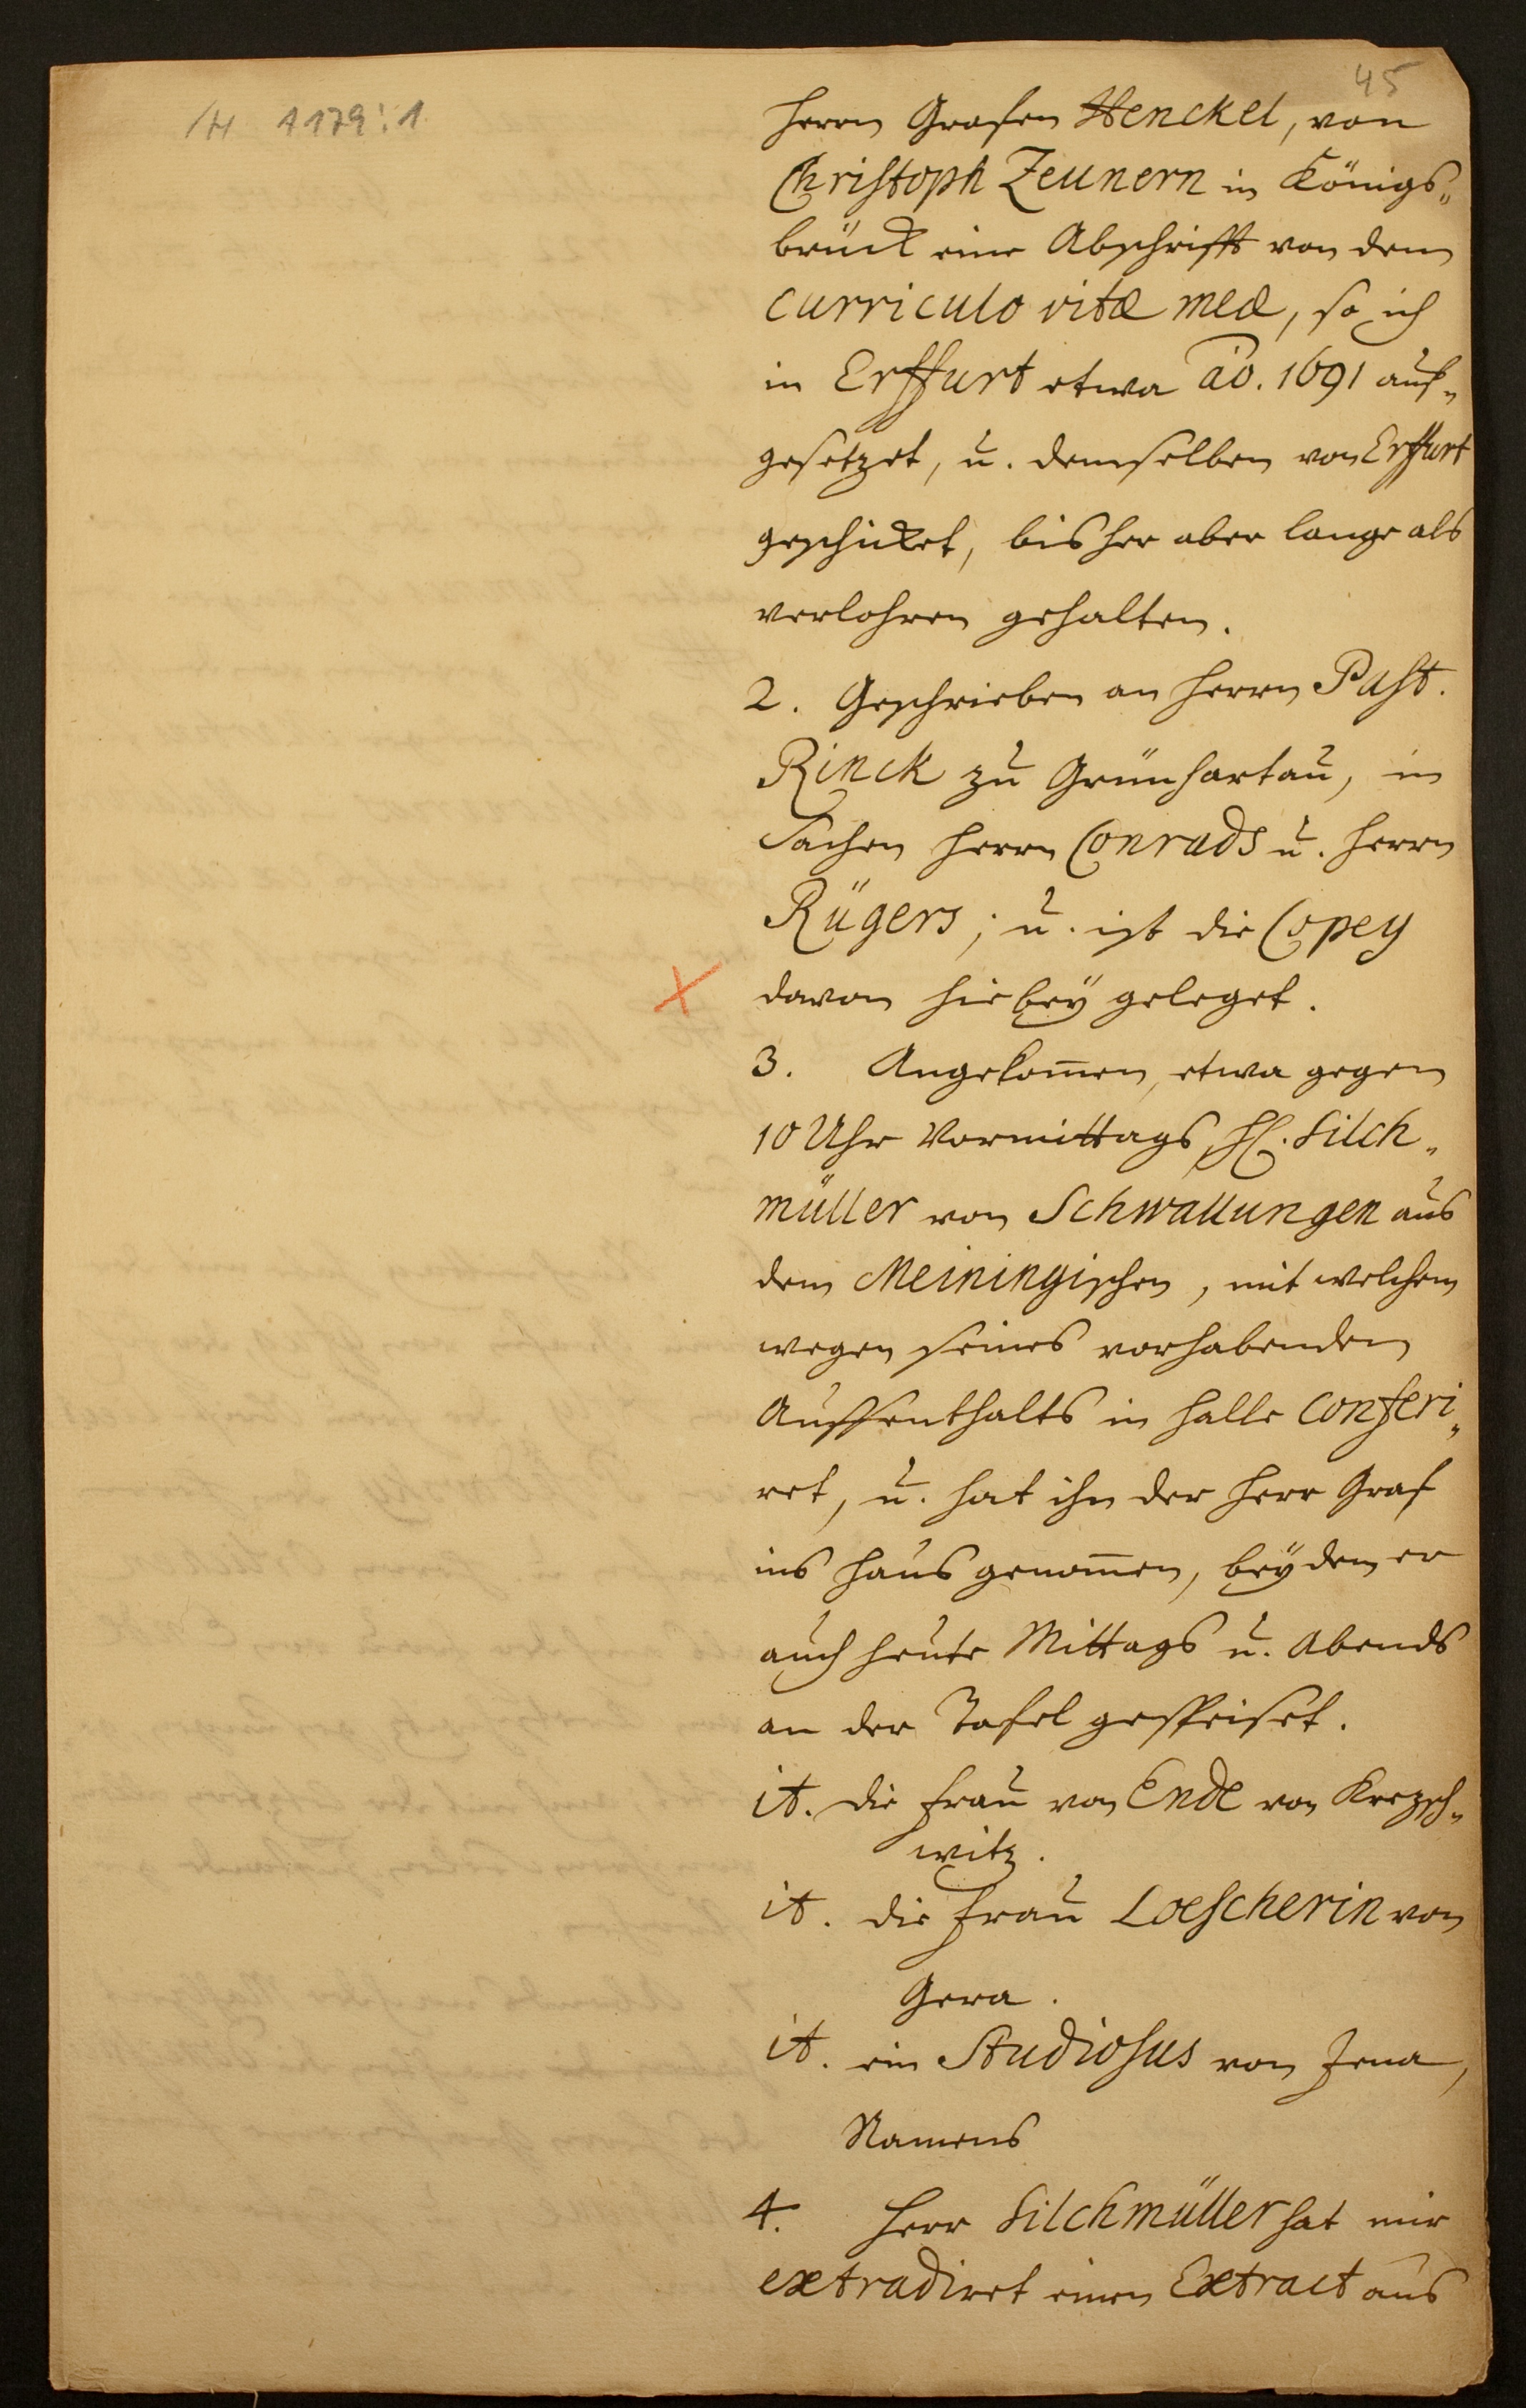 45
1H 1179:1
Herrn Grafen Henckel, von
Christoph Zeunern in Königs„
brück eine Abschrifft von dem
curriculo vitæ meæ, so ich
in Erffurt etwa ao. 1691 auf„
gesetzet, u. demselben von Erffurt
geschicket, bisher aber lange als
verlohren gehalten.
2. Geschrieben an Herrn Past.
Rinck zu Grünhartau, in
Sachen Herrn Conrads u. Herrn
Rügers; u. ist die Copey
davon hiebey geleget.
3. Angekom̄en, etwa gegen
10 Uhr Vormittags, H. Silch„
müller von Schwallungen aus
dem Meiningischen, mit welchem
wegen seines vorhabenden
Auffenthalts in Halle conferi„
ret, u. hat ihn der Herr Graf
ins Haus genom̄en, bey dem er
auch heute Mittags u. Abends
an der Tafel gespeiset.
it. die Frau von Ende von Krezsch„
witz.
it. die Frau Loescherin von
Gera.
it. ein Studiosus von Jena,
Namens
4. Herr Silchmüller hat mir
extradiret einen Extract aus